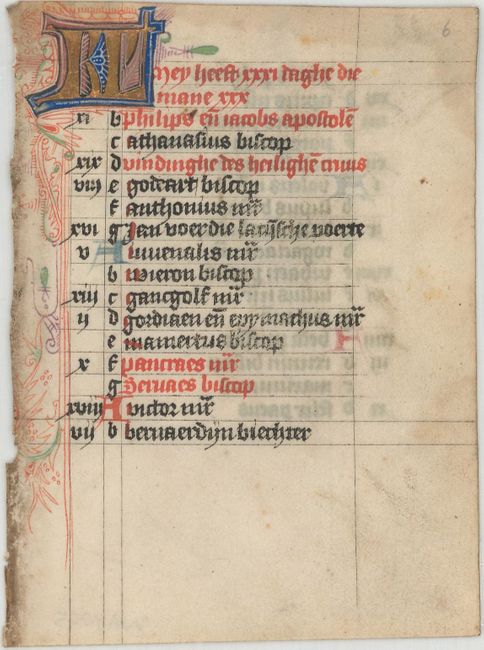 6
Mey heeft xxxi daghe die
mane xxx
xi b Philips eñ iacobs apostolē
c athanasius biscop
xix d vindinghe des heilighē cruus
viij e godeart biscop
f anthonius mr̄
xvi g Jan voer die latijsche poerte
v A iuuenalis mr̄
b wieron biscop
xiij c gangolf mr̄
ij d gordiaen eñ epymachus mr̄
e mamertus biscop
x f pancraes mr̄
g Seruaes biscop
xviij A victor mr̄
vij b bernaerdijn biechter